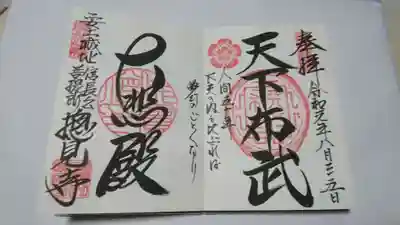 奉拝
令和元年八月二五日
天下布武
人間五十年
下天の内を比ぶれば
夢幻のごとくなり
照殿
安土城址
信長公
菩提所
摠見寺